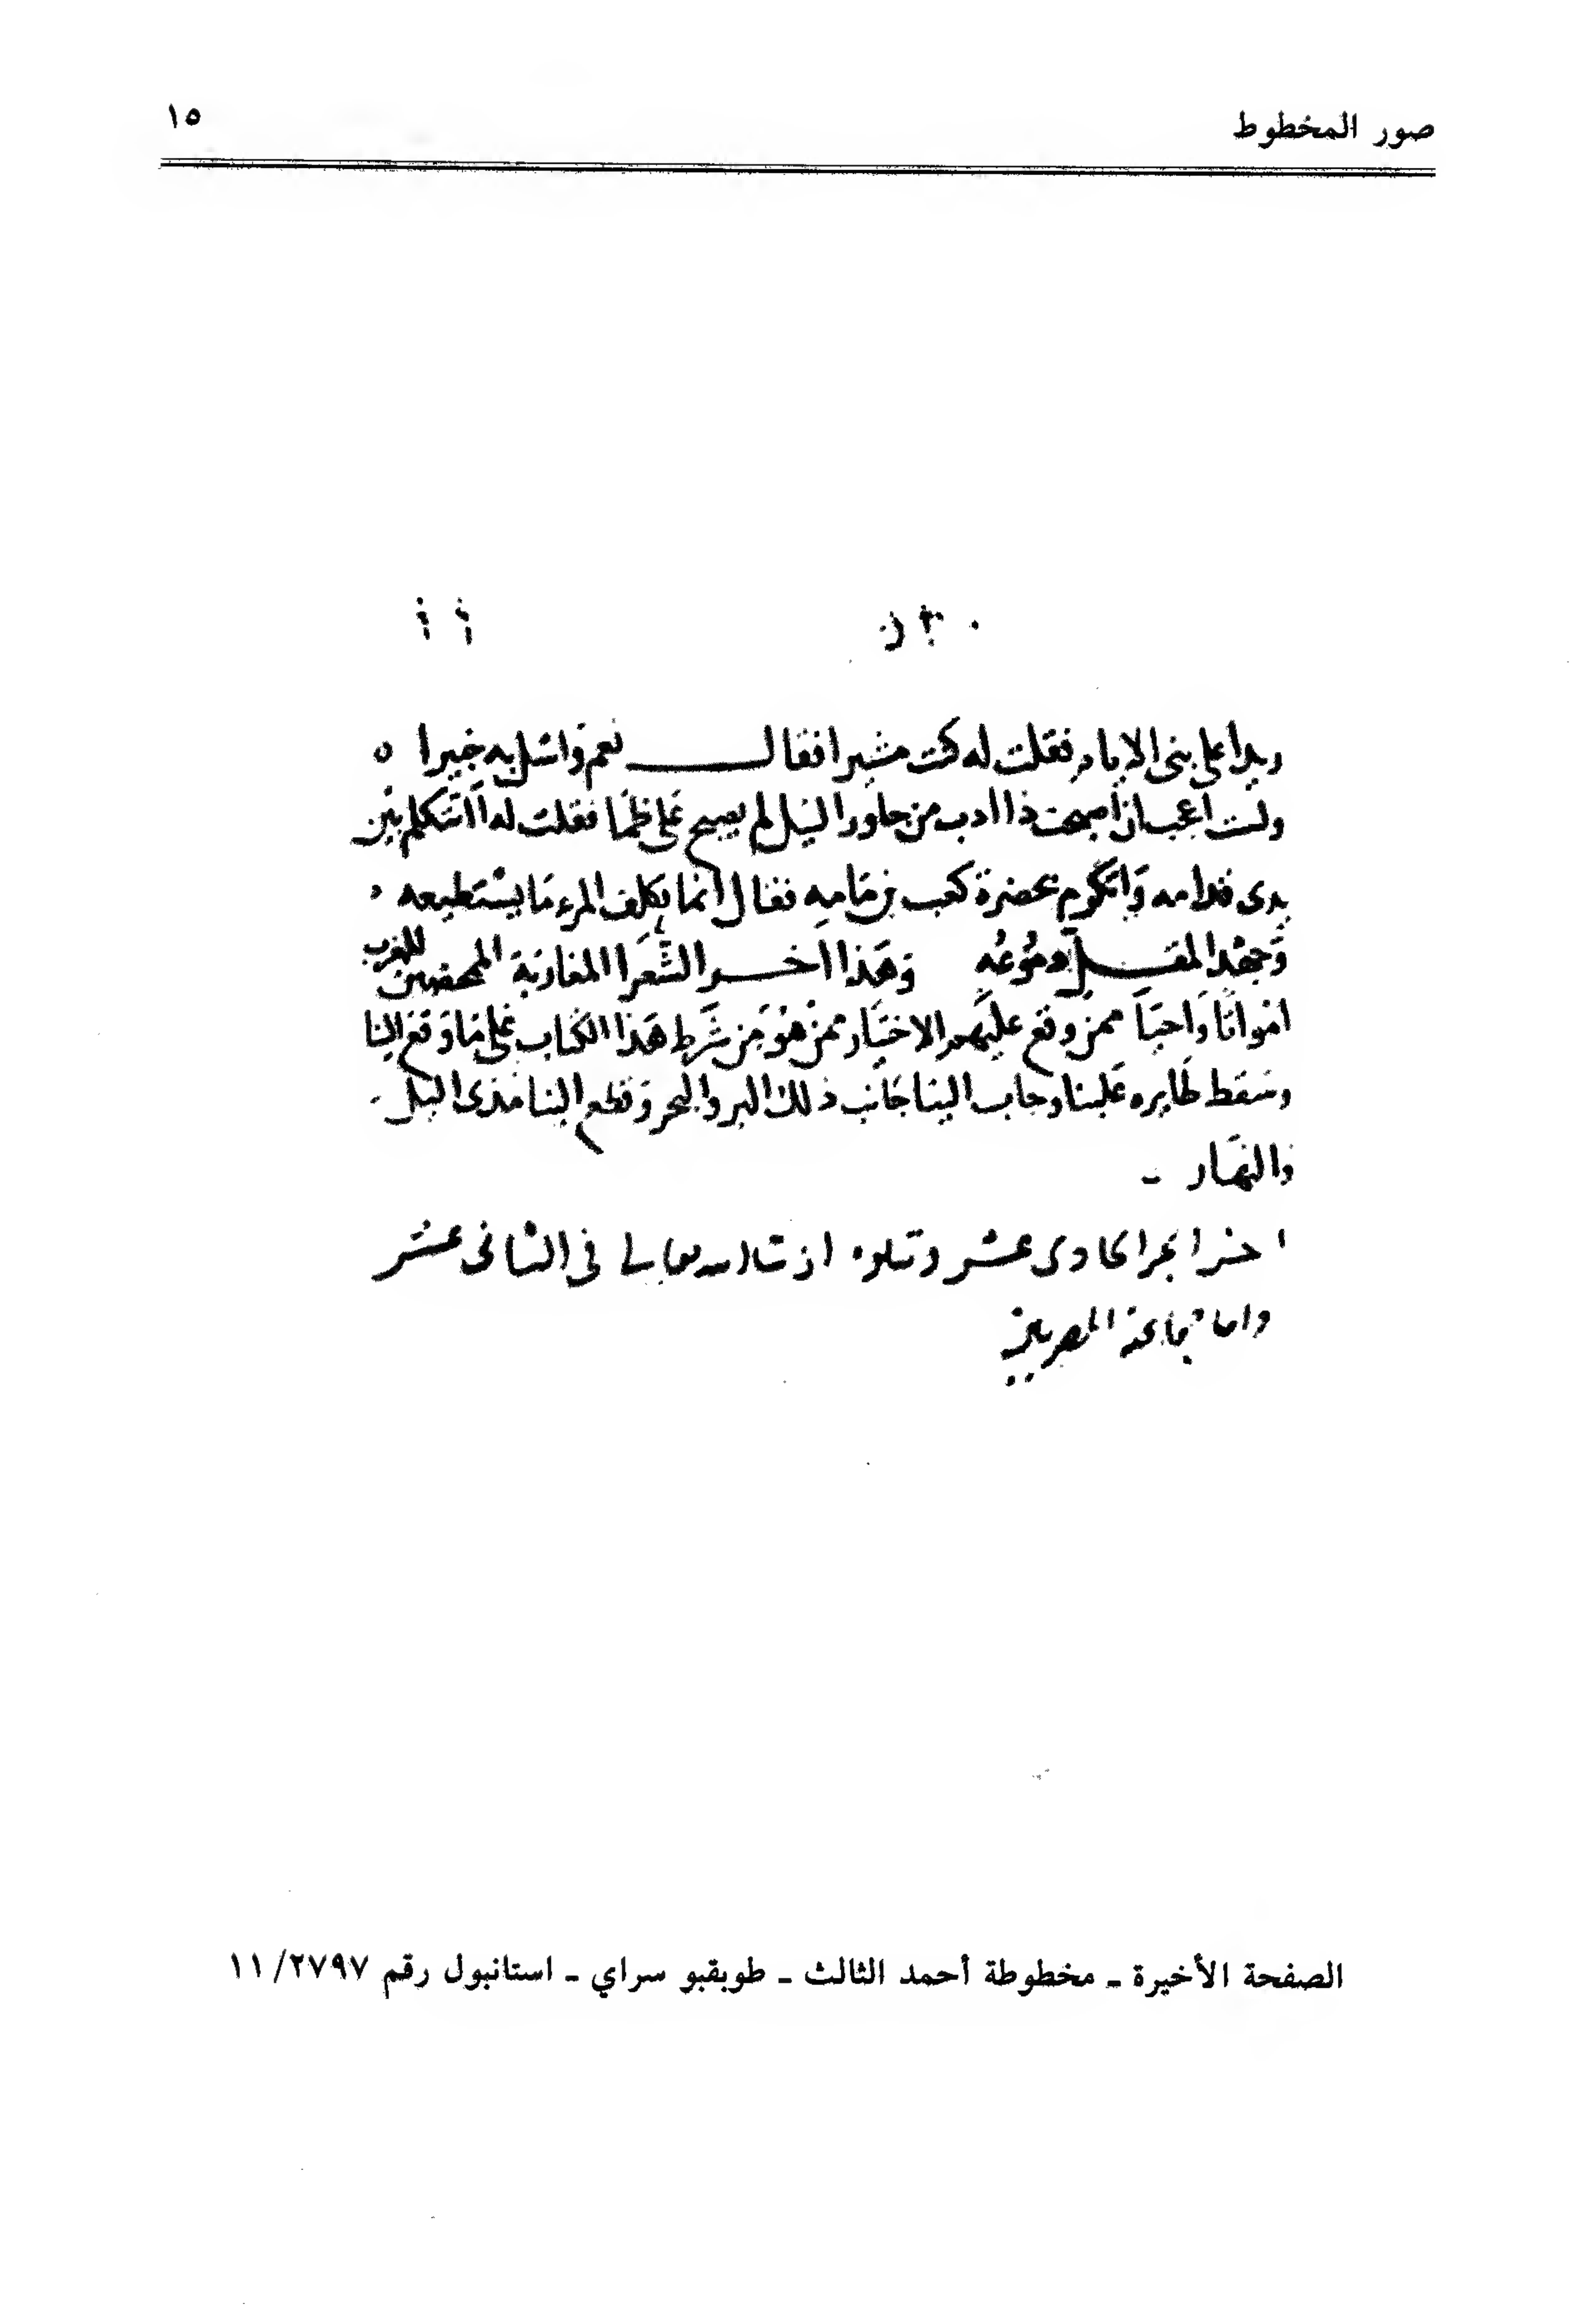 صور المخطوط ١٥
على بنى الايام فقلت له كنت مشيرا فقال نعم واسئل به خبيرا ٥
ولست اعجب ان اصبحت ذا ادب من جاور النيل لم يصبح على ظما فقلت له اتتكلم بين
يدى قدامه وتتكرم بحضرة كعب بن مامه فقال انما يكلف المرء ما يستطيعه
وجهد المقل دموعه وهذا اخر الشعرا المغاربة المحضين للغرب
امواتا واحيا ممن وقع عليهم الاختيار ممن هو من شرط هذا الكتاب على ما وقع الينا
وسقط طايره علينا وجاب الينا جانب ذلك البر والبحر وقطع الينا مدى الليل
والنهار
اخر الجزا الحادى عشر وتتلوه ان شا الله تعالى فى الثانى عشر
واما جماعة المصريين
الصفحة الأخيرة - مخطوطة أحمد الثالث - طوبقبو سراي - استانبول رقم ٢٧٩٧/ ١١